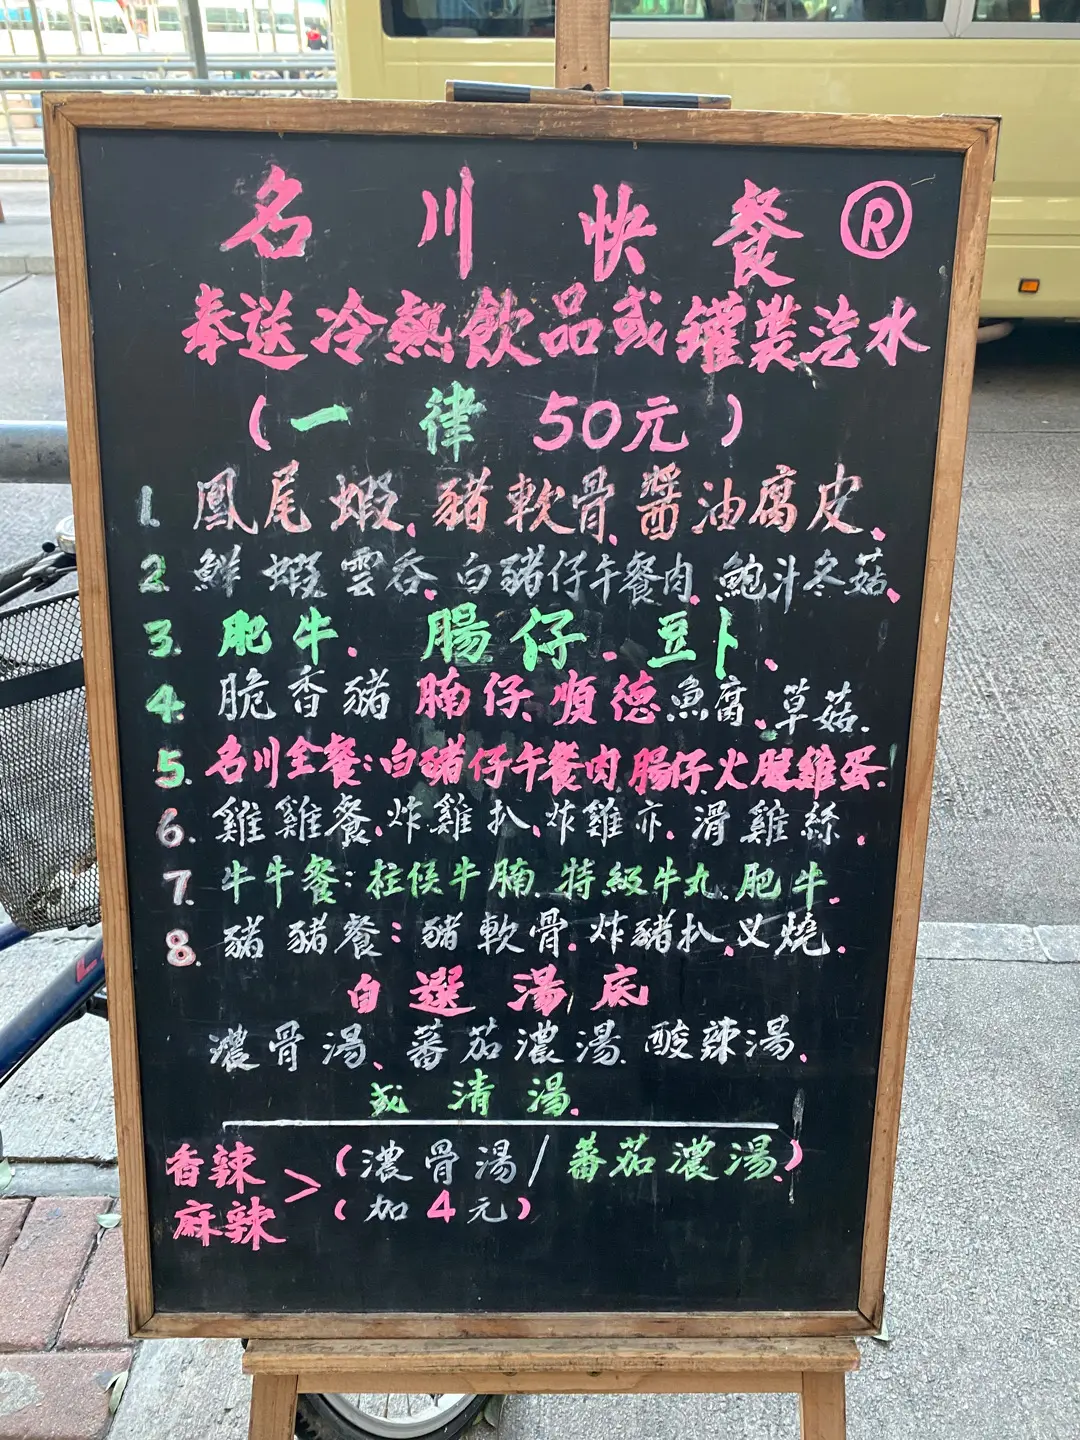 名川快餐®
奉送冷熱飲品或罐裝汽水
(一律50元)
1. 鳳尾蝦、豬軟骨、醬油腐皮、
2. 鮮蝦雲吞、白豬仔午餐肉、鮑汁冬菇、
3. 肥牛、腸仔、豆卜、
4. 脆香豬腩仔、順德魚腐、草菇.
5. 名川全餐:白豬仔午餐肉腸仔火腿雞蛋.
6. 雞雞餐、炸雞扒、炸雞亦、滑雞絲.
7. 牛牛餐:柱侯牛腩、特級牛丸、肥牛.
8. 豬豬餐:豬軟骨、炸豬扒、叉燒.
自選湯底
濃骨湯、蕃茄濃湯、酸辣湯、
或清湯.
香辣
麻辣 > (濃骨湯/蕃茄濃湯)
(加4元)